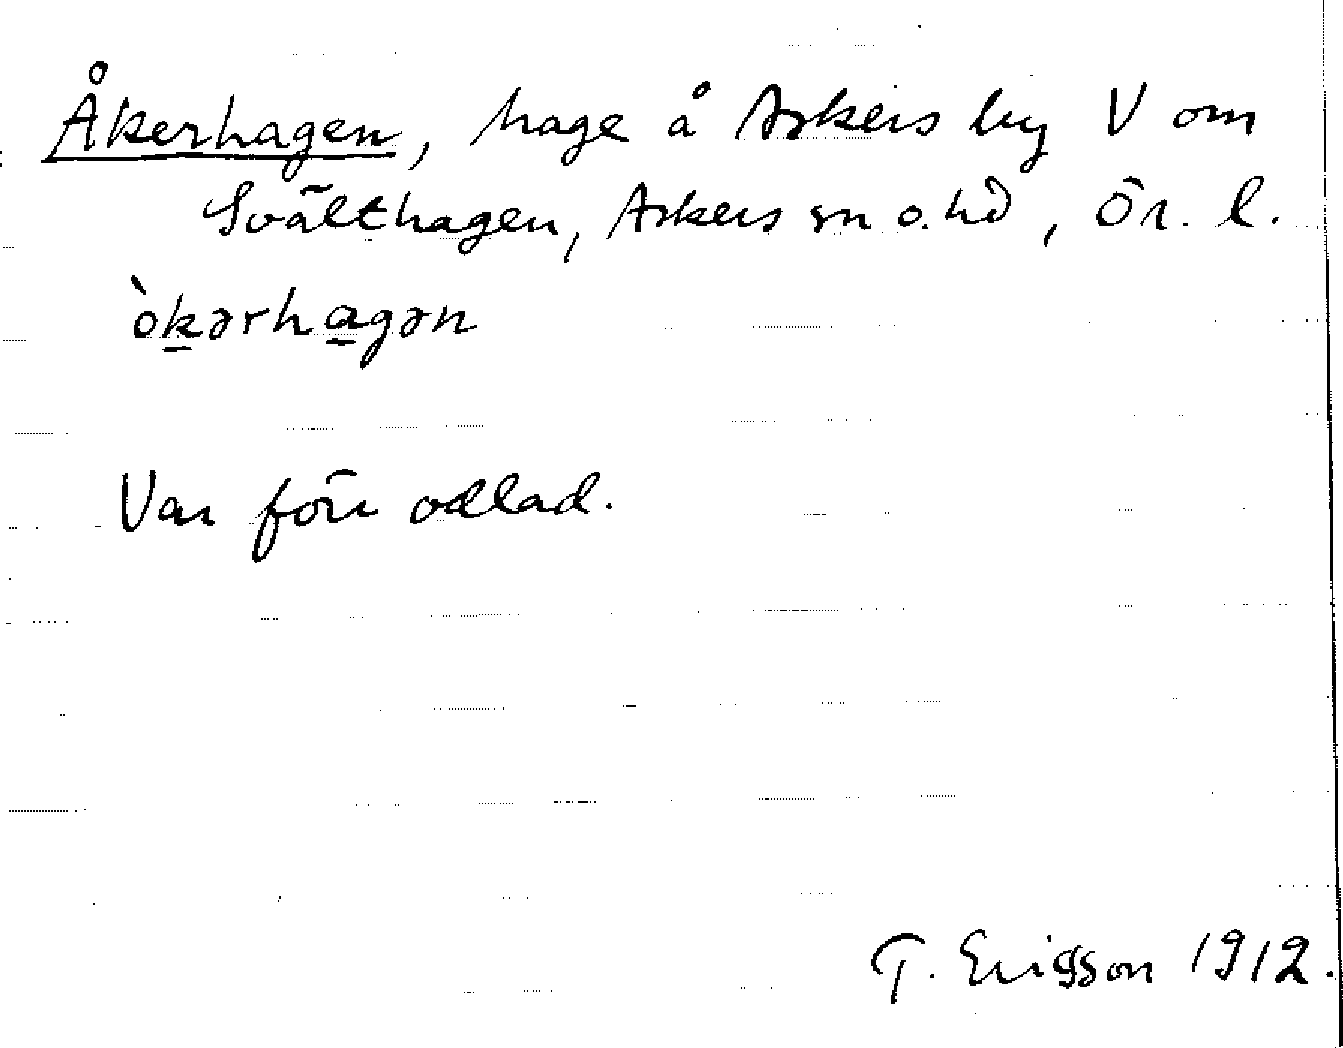 Åkerhagen, hage å Askers by V om
Svälthagen, Askers sn o. hd, Ör. l.
òkərhagən
Var förr odlad.
T. Ericsson 1912.